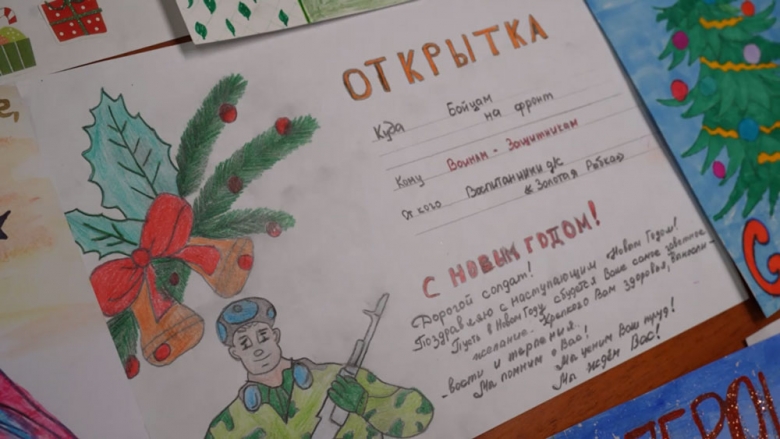 ОТКРЫТКА
Куда Бойцам
на фронт
Кому Воинам - Защитникам
От кого Воспитанники ДК
"Золотая Рыбка"
С НОВЫМ ГОДОМ!
Дорогой солдат!
Поздравляю с наступающим Новым Годом!
Пусть в Новом Году сбудется Ваше самое заветное
желание. Крепкого Вам здоровья, выносли-
вости и терпения.
Мы помним о Вас! Мы ценим Ваш труд!
Мы ждём Вас!